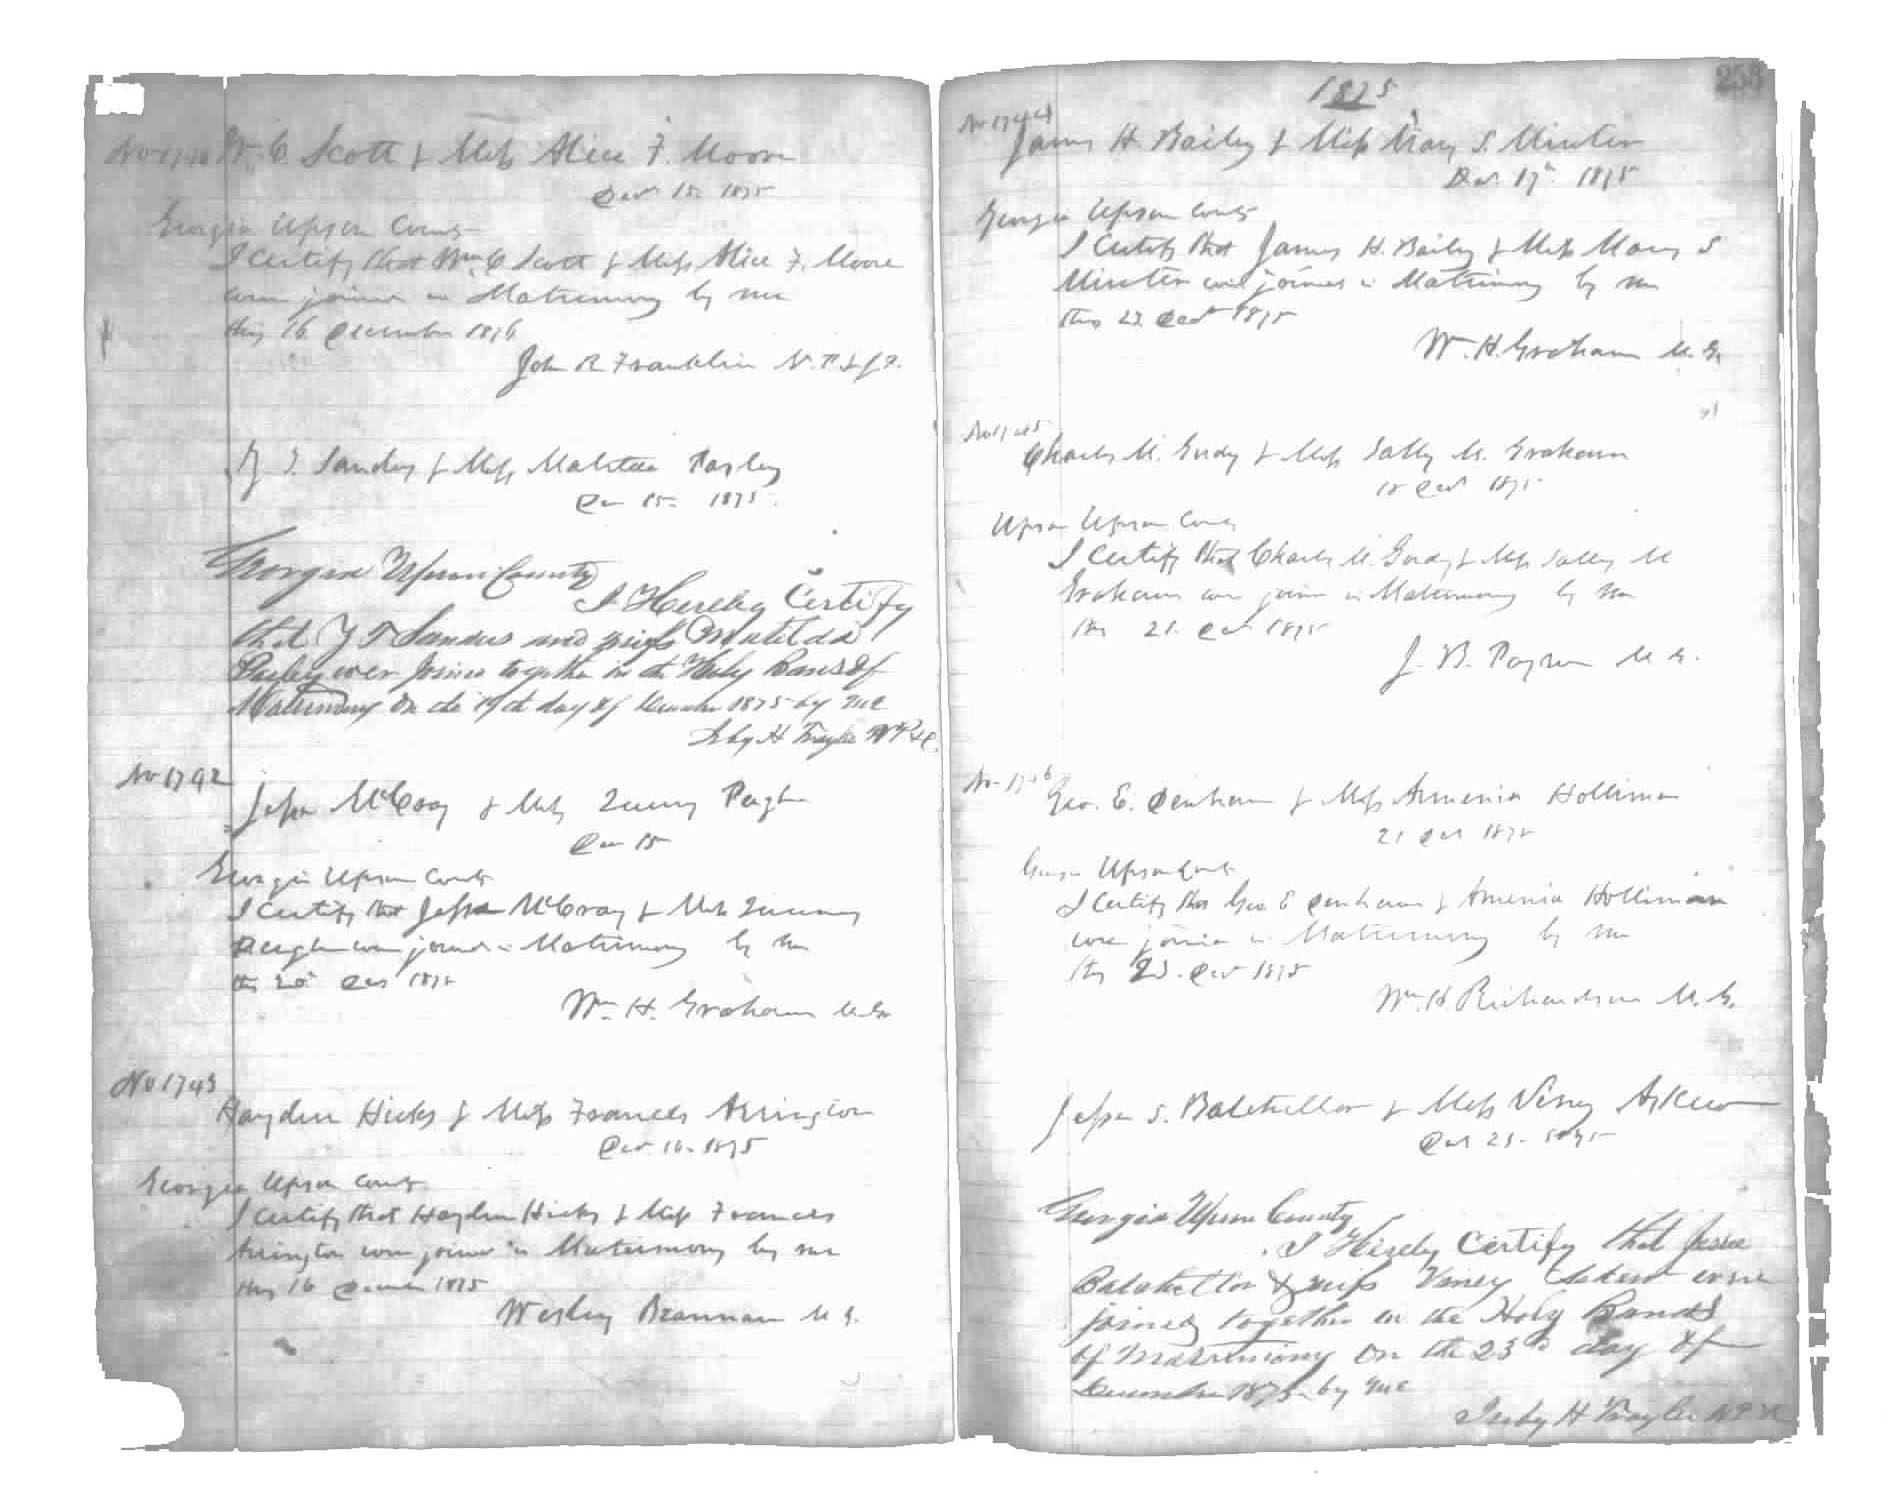 W. C. Scott & Miss Alice F. Moore
Dec 15. 1875
Georgia Upson County
I Certify that Wm C Scott & Miss Alice F. Moore
were joined in Matrimony by me
this 16 December 1876
John R Franklin N.P. & J.P.
Sanders & Miss Matilda Pasley
Dec 15. 1875.
Georgia Upson County
I Hereby Certify
that Y T Sanders and Miss Matilda
Pasley were Joined together in the Holy Bans of
Matrimony on the 19th day of December 1875 by me
H Traylor
No 1742
Jesse McCroy & Miss
Dec 15
Georgia Upson County
I Certify that Jesse McCroy & Miss
were joined in Matrimony by me
the 20th Dec 1875
Wm. H. Graham M.G.
No 1743
Hayden Hicks & Miss Frances Arrington
Dec 16. 1875
Georgia Upson County
I Certify that Hayden Hicks & Miss Frances
Arrington were joined in Matrimony by me
this 16 December 1875
Wesley Brannan M G.
1875
253
No 1744
James H. Bailey & Miss Mary S. Minter
Dec. 17th 1875
Georgia Upson County
I Certify that James H. Bailey & Miss Mary S
Minter were joined in Matrimony by me
this 23. Dec 1875
W. H. Graham M. G.
No 1745
Charles M. Gordy & Miss Sally M. Graham
18 Dec 1875
Upson Upson County
I Certify that Charles M. Gordy & Miss Sally M
Graham were joined in Matrimony by me
this 21. Dec 1875
J. B. M. G.
No 1746
Geo. E. Denham & Miss Armenia Holliman
21 Dec 1875
Georgia Upson County
I Certify that Geo E Denham & Armenia Holliman
were joined in Matrimony by me
this 23. Dec 1875
Wm. H. Richardson M. G.
Jesse S. Batchellor & Miss Viney Askew
Dec 23. 1875
Georgia Upson County
I Hereby Certify that Jesse
Batchellor & Miss Viney Askew were
joined together in the Holy Bands
of Matrimony on the 23rd day of
December 1875 by me
H Traylor